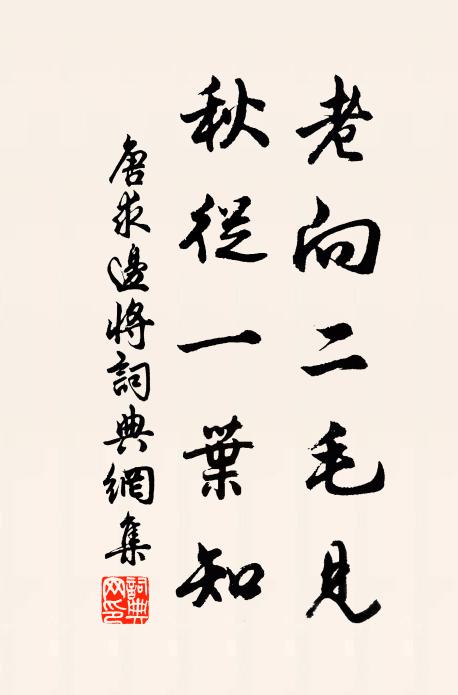 老向二毛見
秋從一葉知
唐求邊將詞典網集
詞典网印